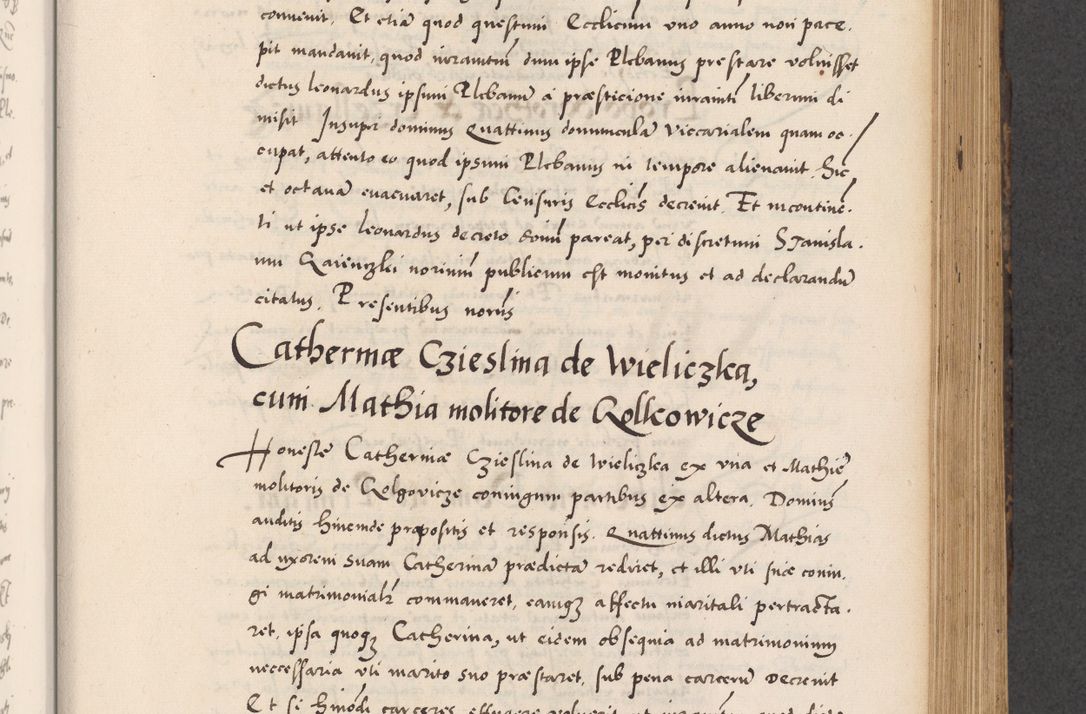 convenit, Et etiã quod questum Ecclicum uno anno non pace.
pit mandavit, quod iurament̃ dum ipse Plebanus prestare voluisset
dictus leonardus ipsum Plebanũ a præsticione iuramti liberum di
misit Insuper dominus Quattinus domunculã viccarialem quam oc /
cupat, attento eo quod ipsum Plebanus ni tempore alienavit. Hic
et octavã evacuaret, sub Censuris Ecclicis decrevit. Et incontinẽ.
ti ut ipse leonardus decreto domi pareat, per discretum Stanisla.
um notrium publicum est monitus et ad declarandũ
citatus. Presentibus noris
Catherinæ Czieslina de Wieliczka,
cum Mathia molitore de Rolkowicze
Honestæ Catherinæ Czieslina de Wieliczka ex una et Mathiẽ
molitoris de Rolgovicze coniugum partibus ex altera. Dominũ
auditis hincinde propositis et responsis. Quattinus dictus Mathias
ad uxorem suam Catherinã prædictã rediret, et illi uti suæ coniu.
gi matrimonialr commaneret, eamqz affectu maritali pertracta.
ret, ipsa quoqz Catherina, ut eidem obsequia ad matrimonium
neccessaria uti marito suo præstaret, sub pena carcerũ Decrevit
Et si carceres effugere